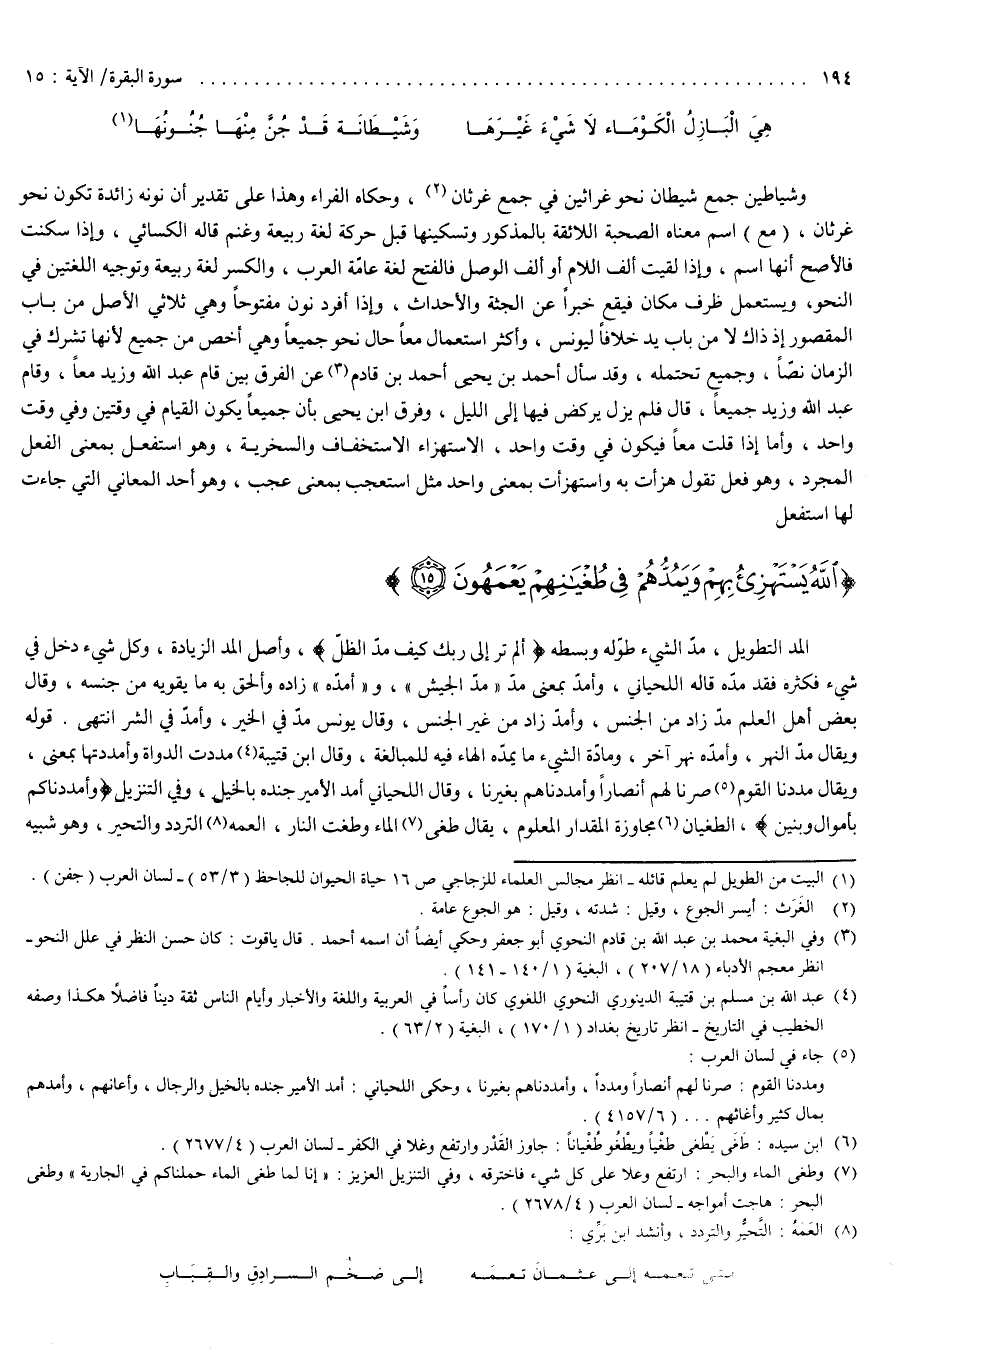 ١٩٤ ........................................................ سورة البقرة/ الآية : ١٥
هِيَ الْبَـازِلُ الْكَـوْمَـاء لَا شَيْءَ غَيْـرَهَـا وَشَيْـطَانَـة قَـدْ جُنَّ مِنْهَـا جُنُـونُهَـا(١)
وشياطين جمع شيطان نحو غراثين في جمع غرثان (٢) ، وحكاه الفراء وهذا على تقدير أن نونه زائدة تكون نحو
غرثان ، ( مع ) اسم معناه الصحبة اللائقة بالمذكور وتسكينها قبل حركة لغة ربيعة وغنم قاله الكسائي ، وإذا سكنت
فالأصح أنها اسم ، وإذا لقيت ألف اللام أو ألف الوصل فالفتح لغة عامّة العرب ، والكسر لغة ربيعة وتوجيه اللغتين في
النحو، ويستعمل ظرف مكان فيقع خبراً عن الجثة والأحداث ، وإذا أفرد نون مفتوحاً وهي ثلاثي الأصل من بـاب
المقصور إذ ذاك لا من باب يد خلافاً ليونس ، وأكثر استعمال معاً حال نحو جميعاً وهي أخص من جميع لأنها تشرك في
الزمان نصّاً ، وجميع تحتمله ، وقد سأل أحمد بن يحيى أحمد بن قادم(٣) عن الفرق بين قام عبد الله وزيد معاً ، وقام
عبد الله وزيد جميعاً ، قال فلم يزل يركض فيها إلى الليل ، وفرق ابن يحيى بأن جميعاً يكون القيام في وقتين وفي وقت
واحد ، وأما إذا قلت معاً فيكون في وقت واحد ، الاستهزاء الاستخفـاف والسخريـة ، وهو استفعـل بمعنى الفعل
المجرد ، وهو فعل تقول هزأت به واستهزأت بمعنى واحد مثل استعجب بمعنى عجب ، وهو أحد المعاني التي جاءت
لها استفعل
﴿ٱللَّهُ يَسْتَهْزِئُ بِهِمْ وَيَمُدُّهُمْ فِي طُغْيَٰنِهِمْ يَعْمَهُونَ ١٥ ﴾
المد التطويل ، مدّ الشيء طوّله وبسطه ﴿ ألم تر إلى ربك كيف مدّ الظلّ ﴾ ، وأصل المد الزيادة ، وكل شيء دخل في
شيء فكثره فقد مدّه قاله اللحياني ، وأمدّ بمعنى مدّ « مدّ الجيش » ، و « أمدّه » زاده وألحق به ما يقويه من جنسه ، وقال
بعض أهل العلم مدّ زاد من الجنس ، وأمدّ زاد من غير الجنس ، وقال يونس مدّ في الخير ، وأمدّ في الشر انتهى . قوله
ويقال مدّ النهر ، وأمدّه نهر آخر ، ومادّة الشيء ما يمدّه الهاء فيه للمبالغة ، وقال ابن قتيبة(٤) مددت الدواة وأمددتها بمعنى ،
ويقال مددنا القوم(٥) صرنا لهم أنصاراً وأمددناهم بغيرنا ، وقال اللحياني أمد الأمير جنده بالخيل ، وفي التنزيل ﴿وأمددناكم
بأموال وبنين ﴾ ، الطغيان(٦) مجاوزة المقدار المعلوم ، يقال طغى(٧) الماء وطغت النار ، العمه(٨) التردد والتحير ، وهو شبيه
(١) البيت من الطويل لم يعلم قائله ـ انظر مجالس العلماء للزجاجي ص ١٦ حياة الحيوان للجاحظ ( ٥٣/٣ ) ـ لسان العرب ( جفن ) .
(٢) الغَرَث : أيسر الجوع ، وقيل : شدته ، وقيل : هو الجوع عامة .
(٣) وفي البغية محمد بن عبد الله بن قادم النحوي أبو جعفر وحكي أيضاً أن اسمه أحمد . قال ياقوت : كان حسن النظر في علل النحو ـ
انظر معجم الأدباء ( ٢٠٧/١٨ ) ، البغية ( ١٤٠/١ ـ ١٤١ ) .
(٤) عبد الله بن مسلم بن قتيبة الدينوري النحوي اللغوي كان رأساً في العربية واللغة والأخبار وأيام الناس ثقة ديناً فاضلًا هكذا وصفه
الخطيب في التاريخ ـ انظر تاريخ بغداد ( ١٧٠/١ ) ، البغية ( ٦٣/٢ ) .
(٥) جاء في لسان العرب :
ومددنا القوم : صرنا لهم أنصاراً ومدداً ، وأمددناهم بغيرنا ، وحكى اللحياني : أمد الأمير جنده بالخيل والرجال ، وأعانهم ، وأمدهم
بمال كثير وأغاثهم . . . ( ٤١٥٧/٦ ) .
(٦) ابن سيده : طَغَى يَطْغى طغْياً ويطْغُو طُغْياناً : جاوز القَدْر وارتفع وغلا في الكفر ـ لسان العرب ( ٢٦٧٧/٤ ) .
(٧) وطغى الماء والبحر : ارتفع وعلا على كل شيء فاخترقه ، وفي التنزيل العزيز : « إنا لما طغى الماء حملناكم في الجارية » وطغى
البحر : هاجت أمواجه ـ لسان العرب ( ٢٦٧٨/٤ ) .
(٨) العَمَهُ : التَّحيُّر والتردد ، وأنشد ابن بَرِّي :
تعمه إلـى عـثـمـانَ تـعـمَـه إلـى ضـخْـم الـسـرادِقِ والـقِـبَـابِ